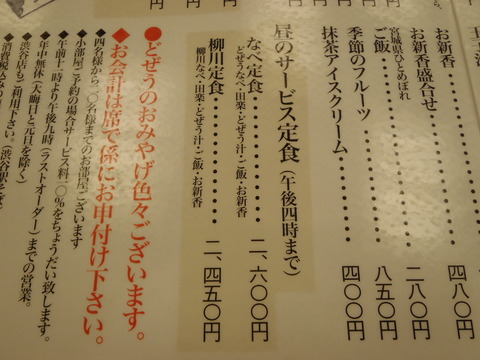 お新香
お新香盛合せ‥‥‥四八〇円
宮城県ひとめぼれ
ご飯‥‥‥二八〇円
季節のフルーツ‥‥‥八五〇円
抹茶アイスクリーム‥‥‥四〇〇円
昼のサービス定食（午後四時まで）
なべ定食‥‥‥二、六〇〇円
どぜうなべ・田楽・どぜう汁・ご飯・お新香
柳川定食‥‥‥二、四五〇円
柳川なべ・田楽・どぜう汁・ご飯・お新香
◆どぜうのおみやげ色々ございます。
◆お会計は席で係にお申付け下さい。
◆四名様から
◆小部屋ご予約の場合サービス料一〇％をちょうだい致します。
◆午前十一時より午後九時（ラストオーダー）までの営業。
◆年中無休（大晦日と元旦を除く）
◆渋谷店もご利用下さい。
◆消費税込み